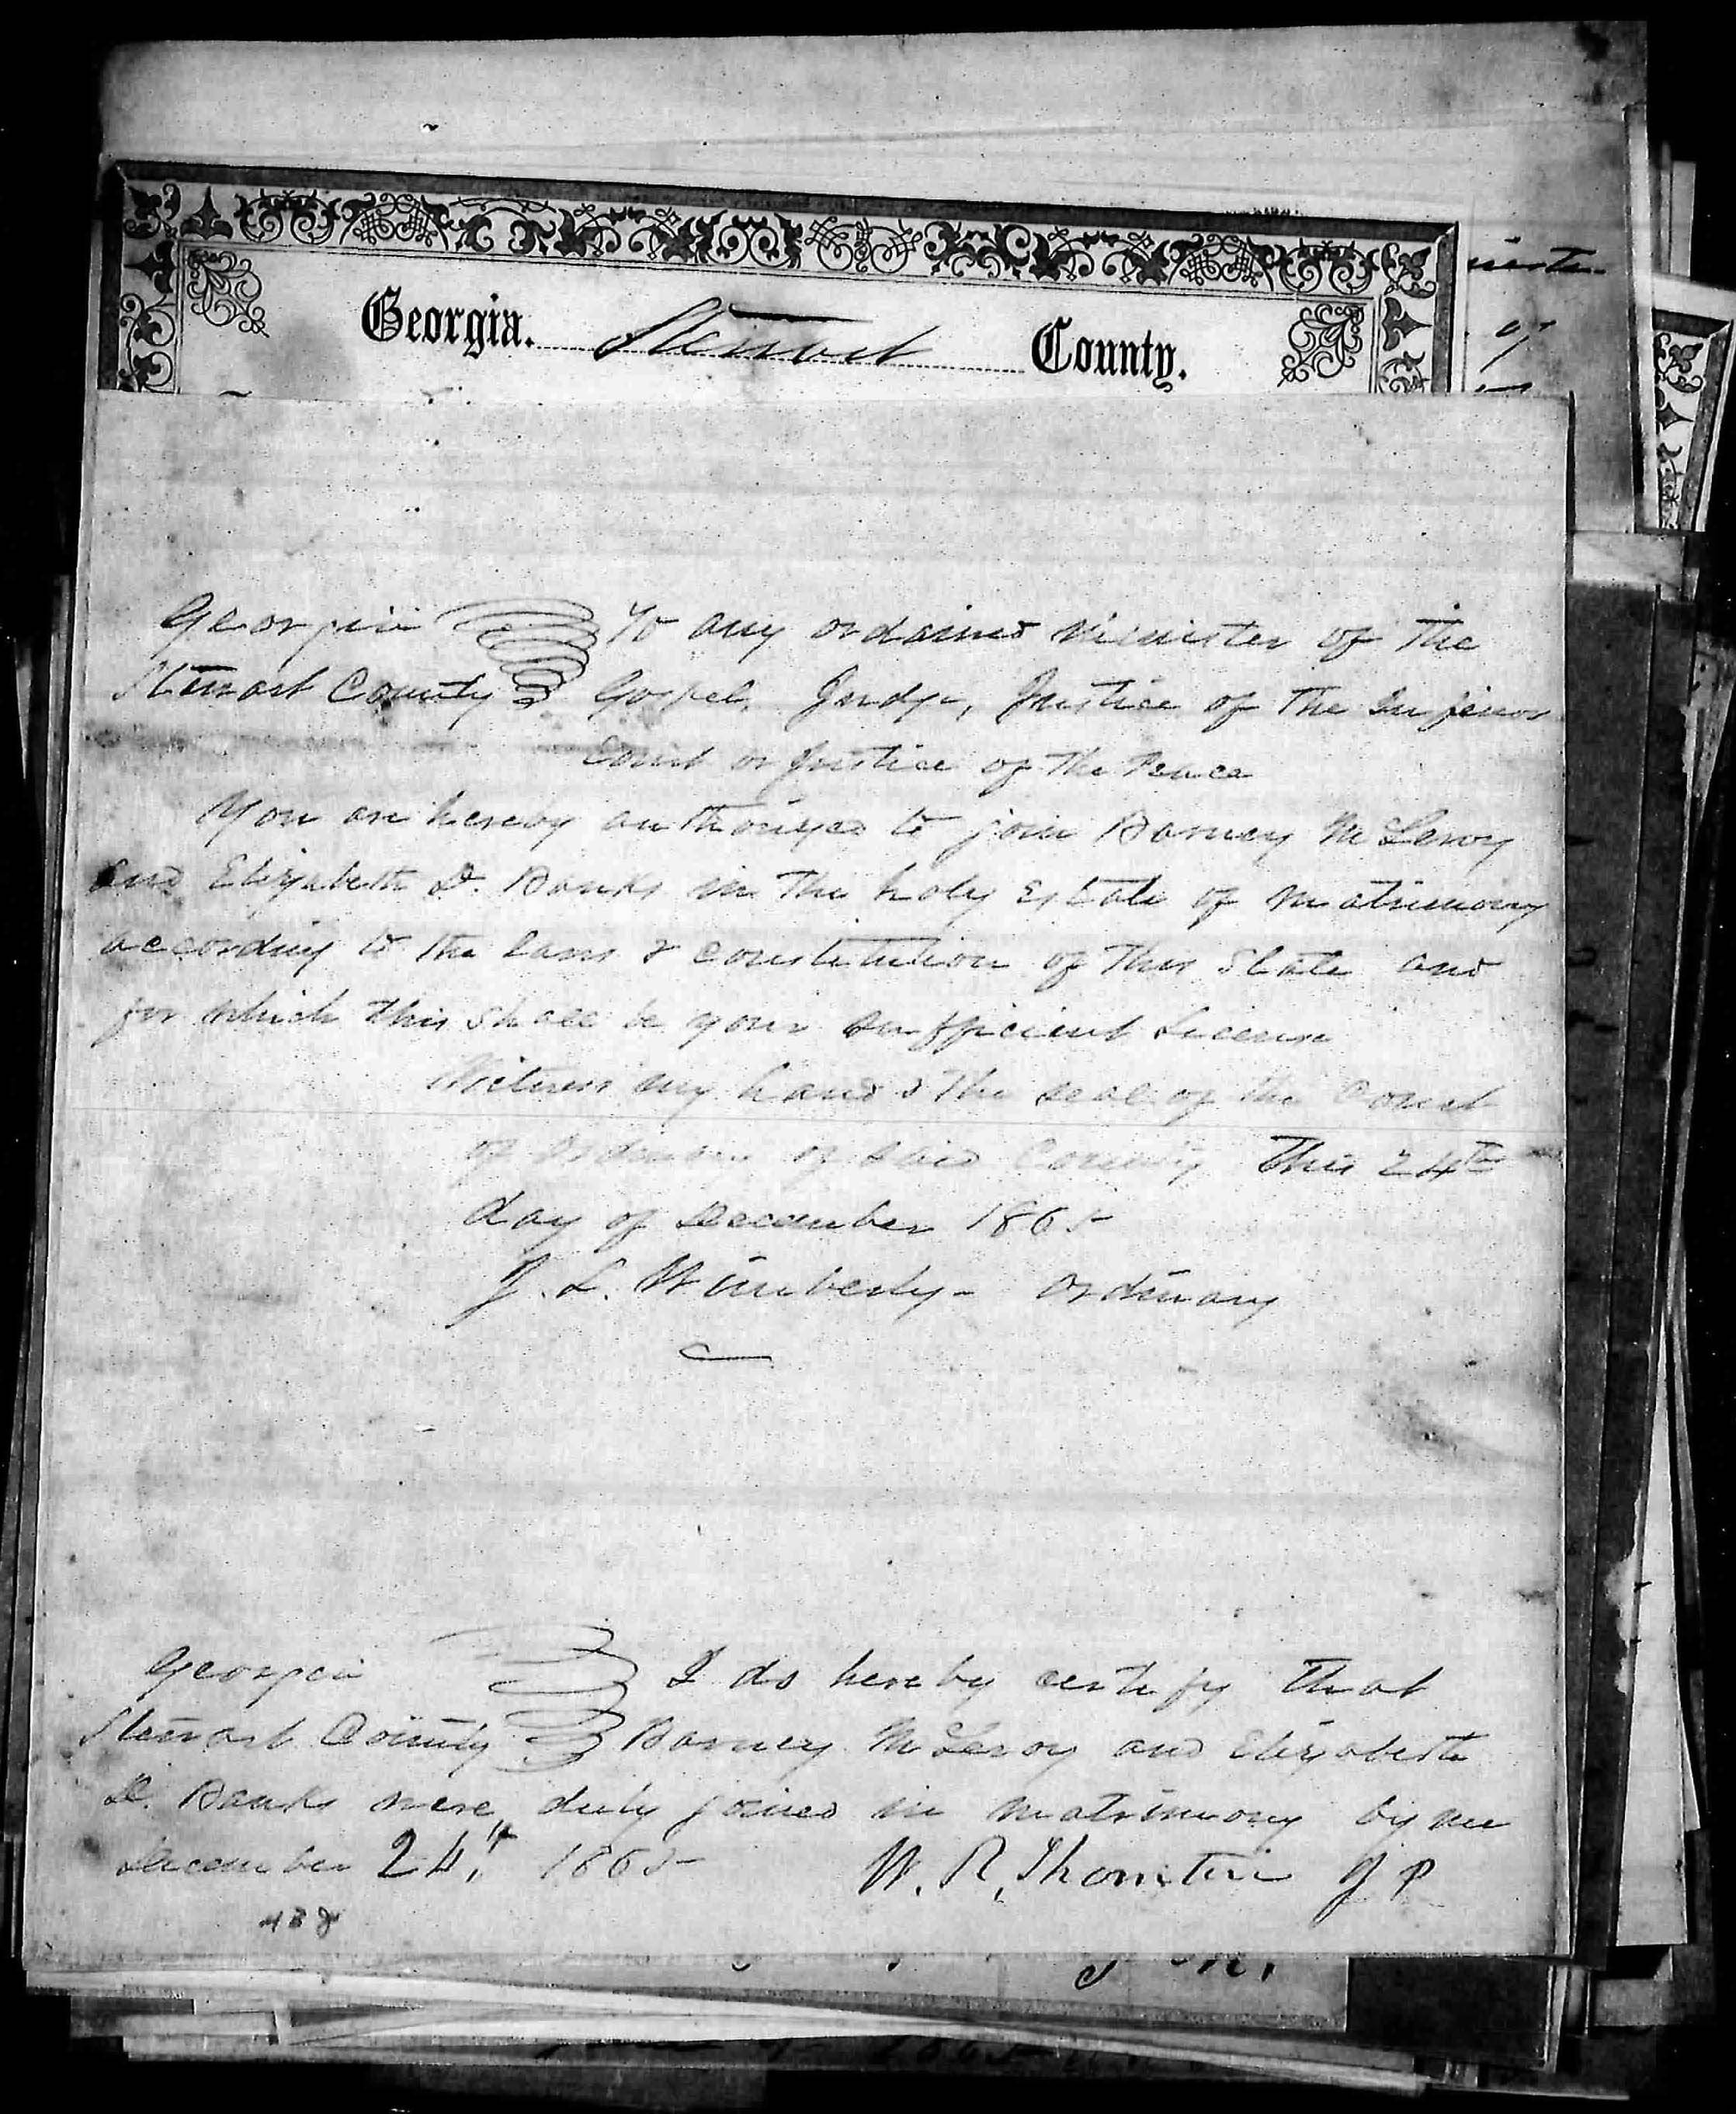 Georgia. Stewart County.
Georgia To any ordained Minister of the
Stewart County Gospel, Judge, Justice of the Inferior
Court or Justice of the Peace
You are hereby authorized to join Barney McLeroy
and Elizabeth D. Banks in the holy Estate of Matrimony
according to the laws & constitution of this State and
for which this shall be your sufficient License
Witness my hand & the seal of the Court
of Ordinary of said County This 24th
day of December 1865
J. L. Wimberly - Ordinary
Georgia I do hereby certify that
Stewart County Barney McLeroy and Elizabeth
D. Banks were duly joined in matrimony by me
December 24th 1865 W. R. Thornton J P
438